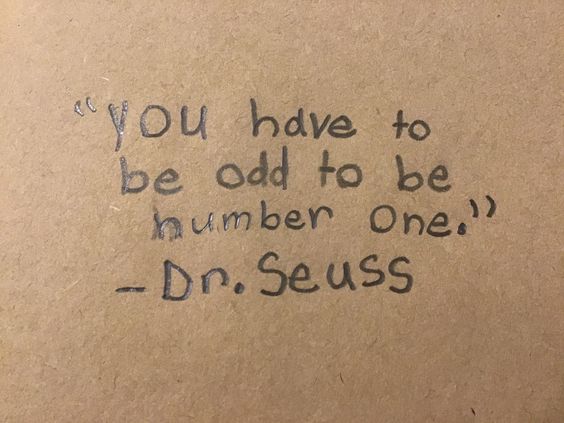 "you have to
be odd to be
number one."
- Dr. Seuss